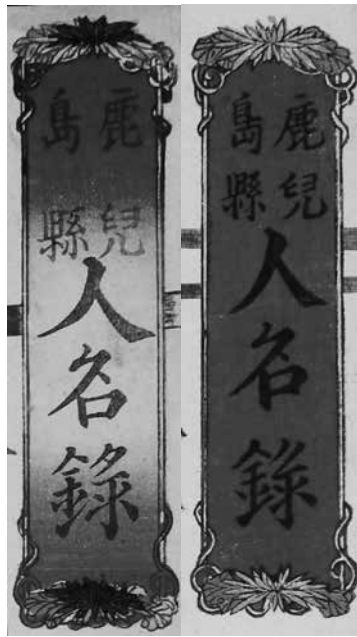 鹿兒
島縣
人名錄
鹿兒
島縣
人名錄